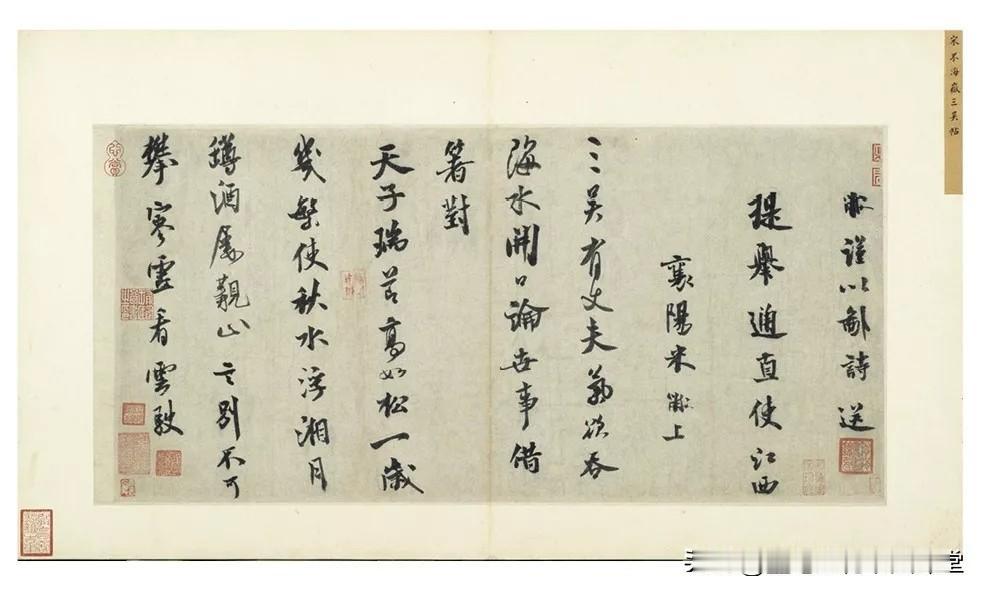 宋米海嶽三吳帖
黻謹以鄙詩送
提舉通直使江西
襄陽米黻上
三吳有丈夫氣欲吞
海水開口論世事借
箸對
天子瑞節高如松一歲
幾繁使秋水浮湘月
罇酒屢觀山言別不可
攀看雲駛
堂